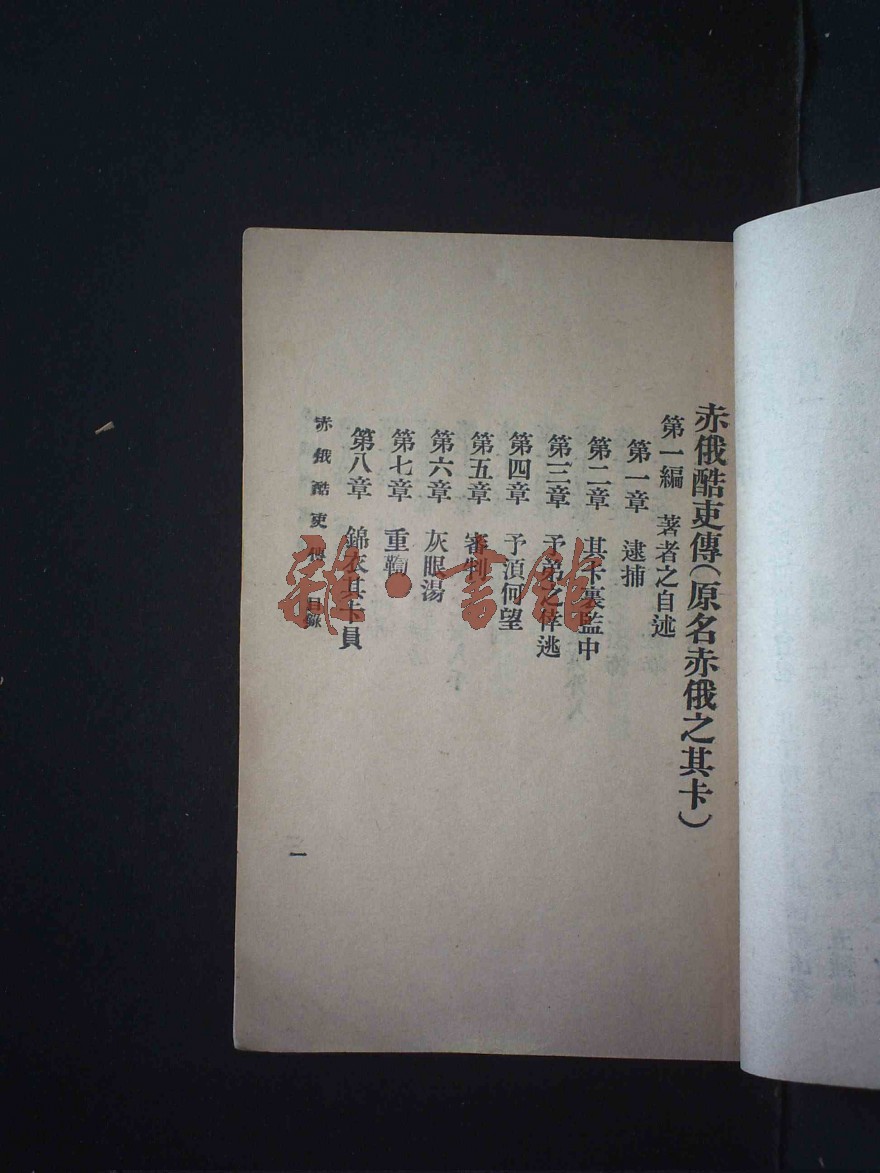 赤俄酷吏傳(原名赤俄之其卡)
第一編 著者之自述
第一章 逮捕
第二章 其卡裏監中
第三章 予弟之倖逃
第四章 予湏何望
第五章 審判
第六章 灰眼湯
第七章 重鞫
第八章 錦衣其卡員
赤俄酷吏傳 目錄
一
雜·書館